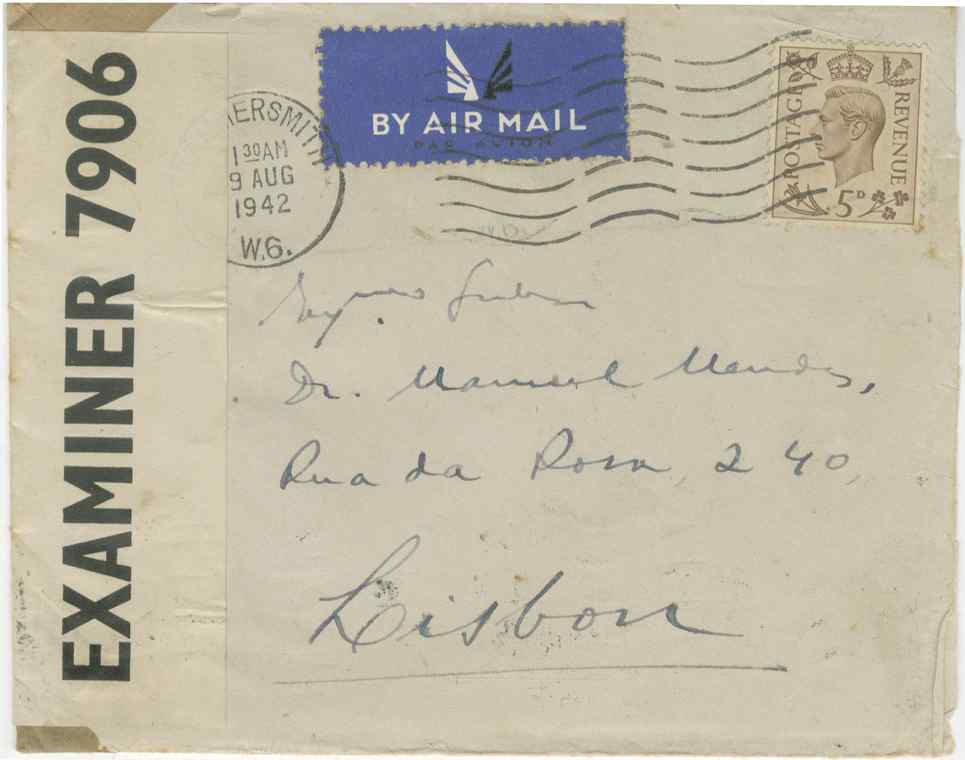 EXAMINER 7906
ERSMITH
1 30 AM
9 AUG
1942
W.6.
BY AIR MAIL
PAR AVION
POSTAGE
REVENUE
5D
Dr. Manuel Mendes,
Rua da Rosa, 240,
Lisbon